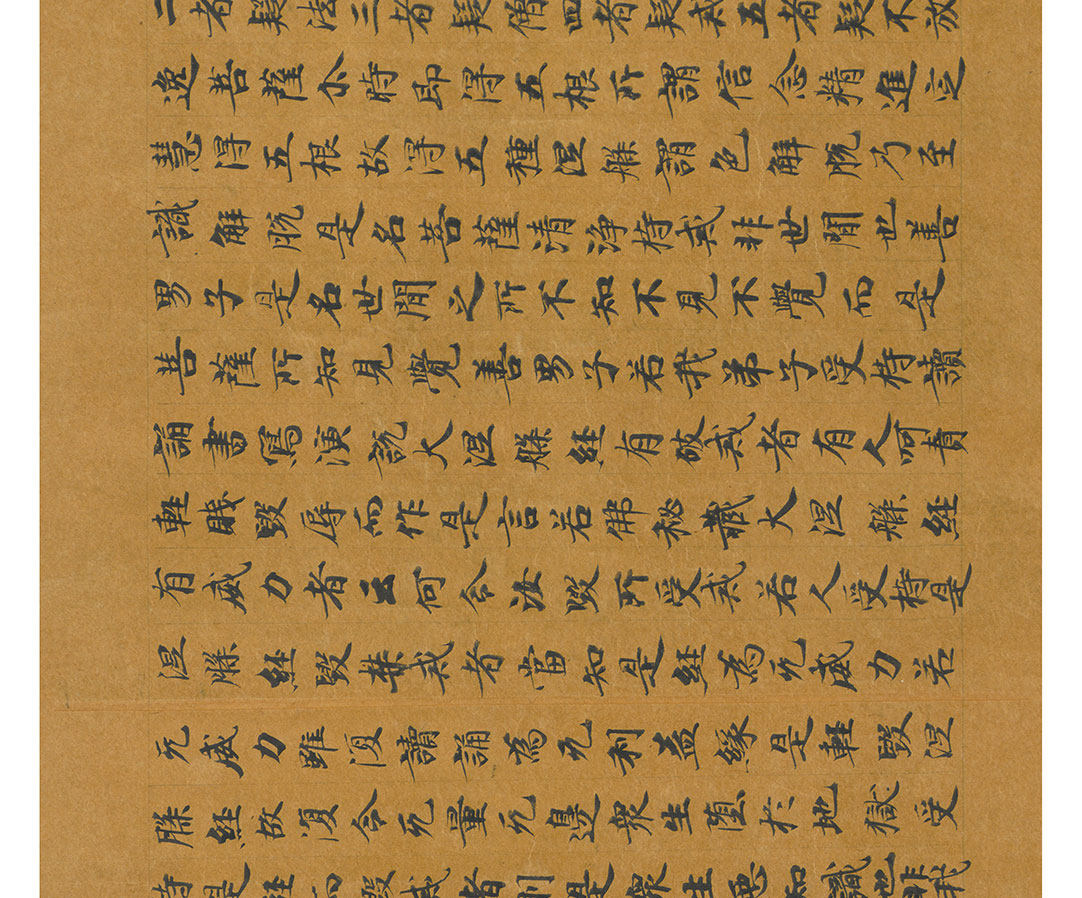 二者疑法三者疑僧四者疑戒五者疑不放
逸菩薩尒時即得五根所謂信念精進定
慧得五根故得五種涅槃謂色解脫乃至
識解脫是名菩薩清淨持戒非世間也善
男子是名世間之所不知不見不覺而是
菩薩所知見覺善男子若我弟子受持讀
誦書寫演說大涅槃經有破戒者有人呵責
輕賤毀辱而作是言若佛秘藏大涅槃經
有威力者云何令汝毀所受戒若人受持是
涅槃經毀禁戒者當知是經為无威力若
无威力雖復讀誦為无利益緣是輕毀涅
槃經故復令无量无邊衆生墮於地獄受
持是經而毀戒者則是衆生惡知識也非我